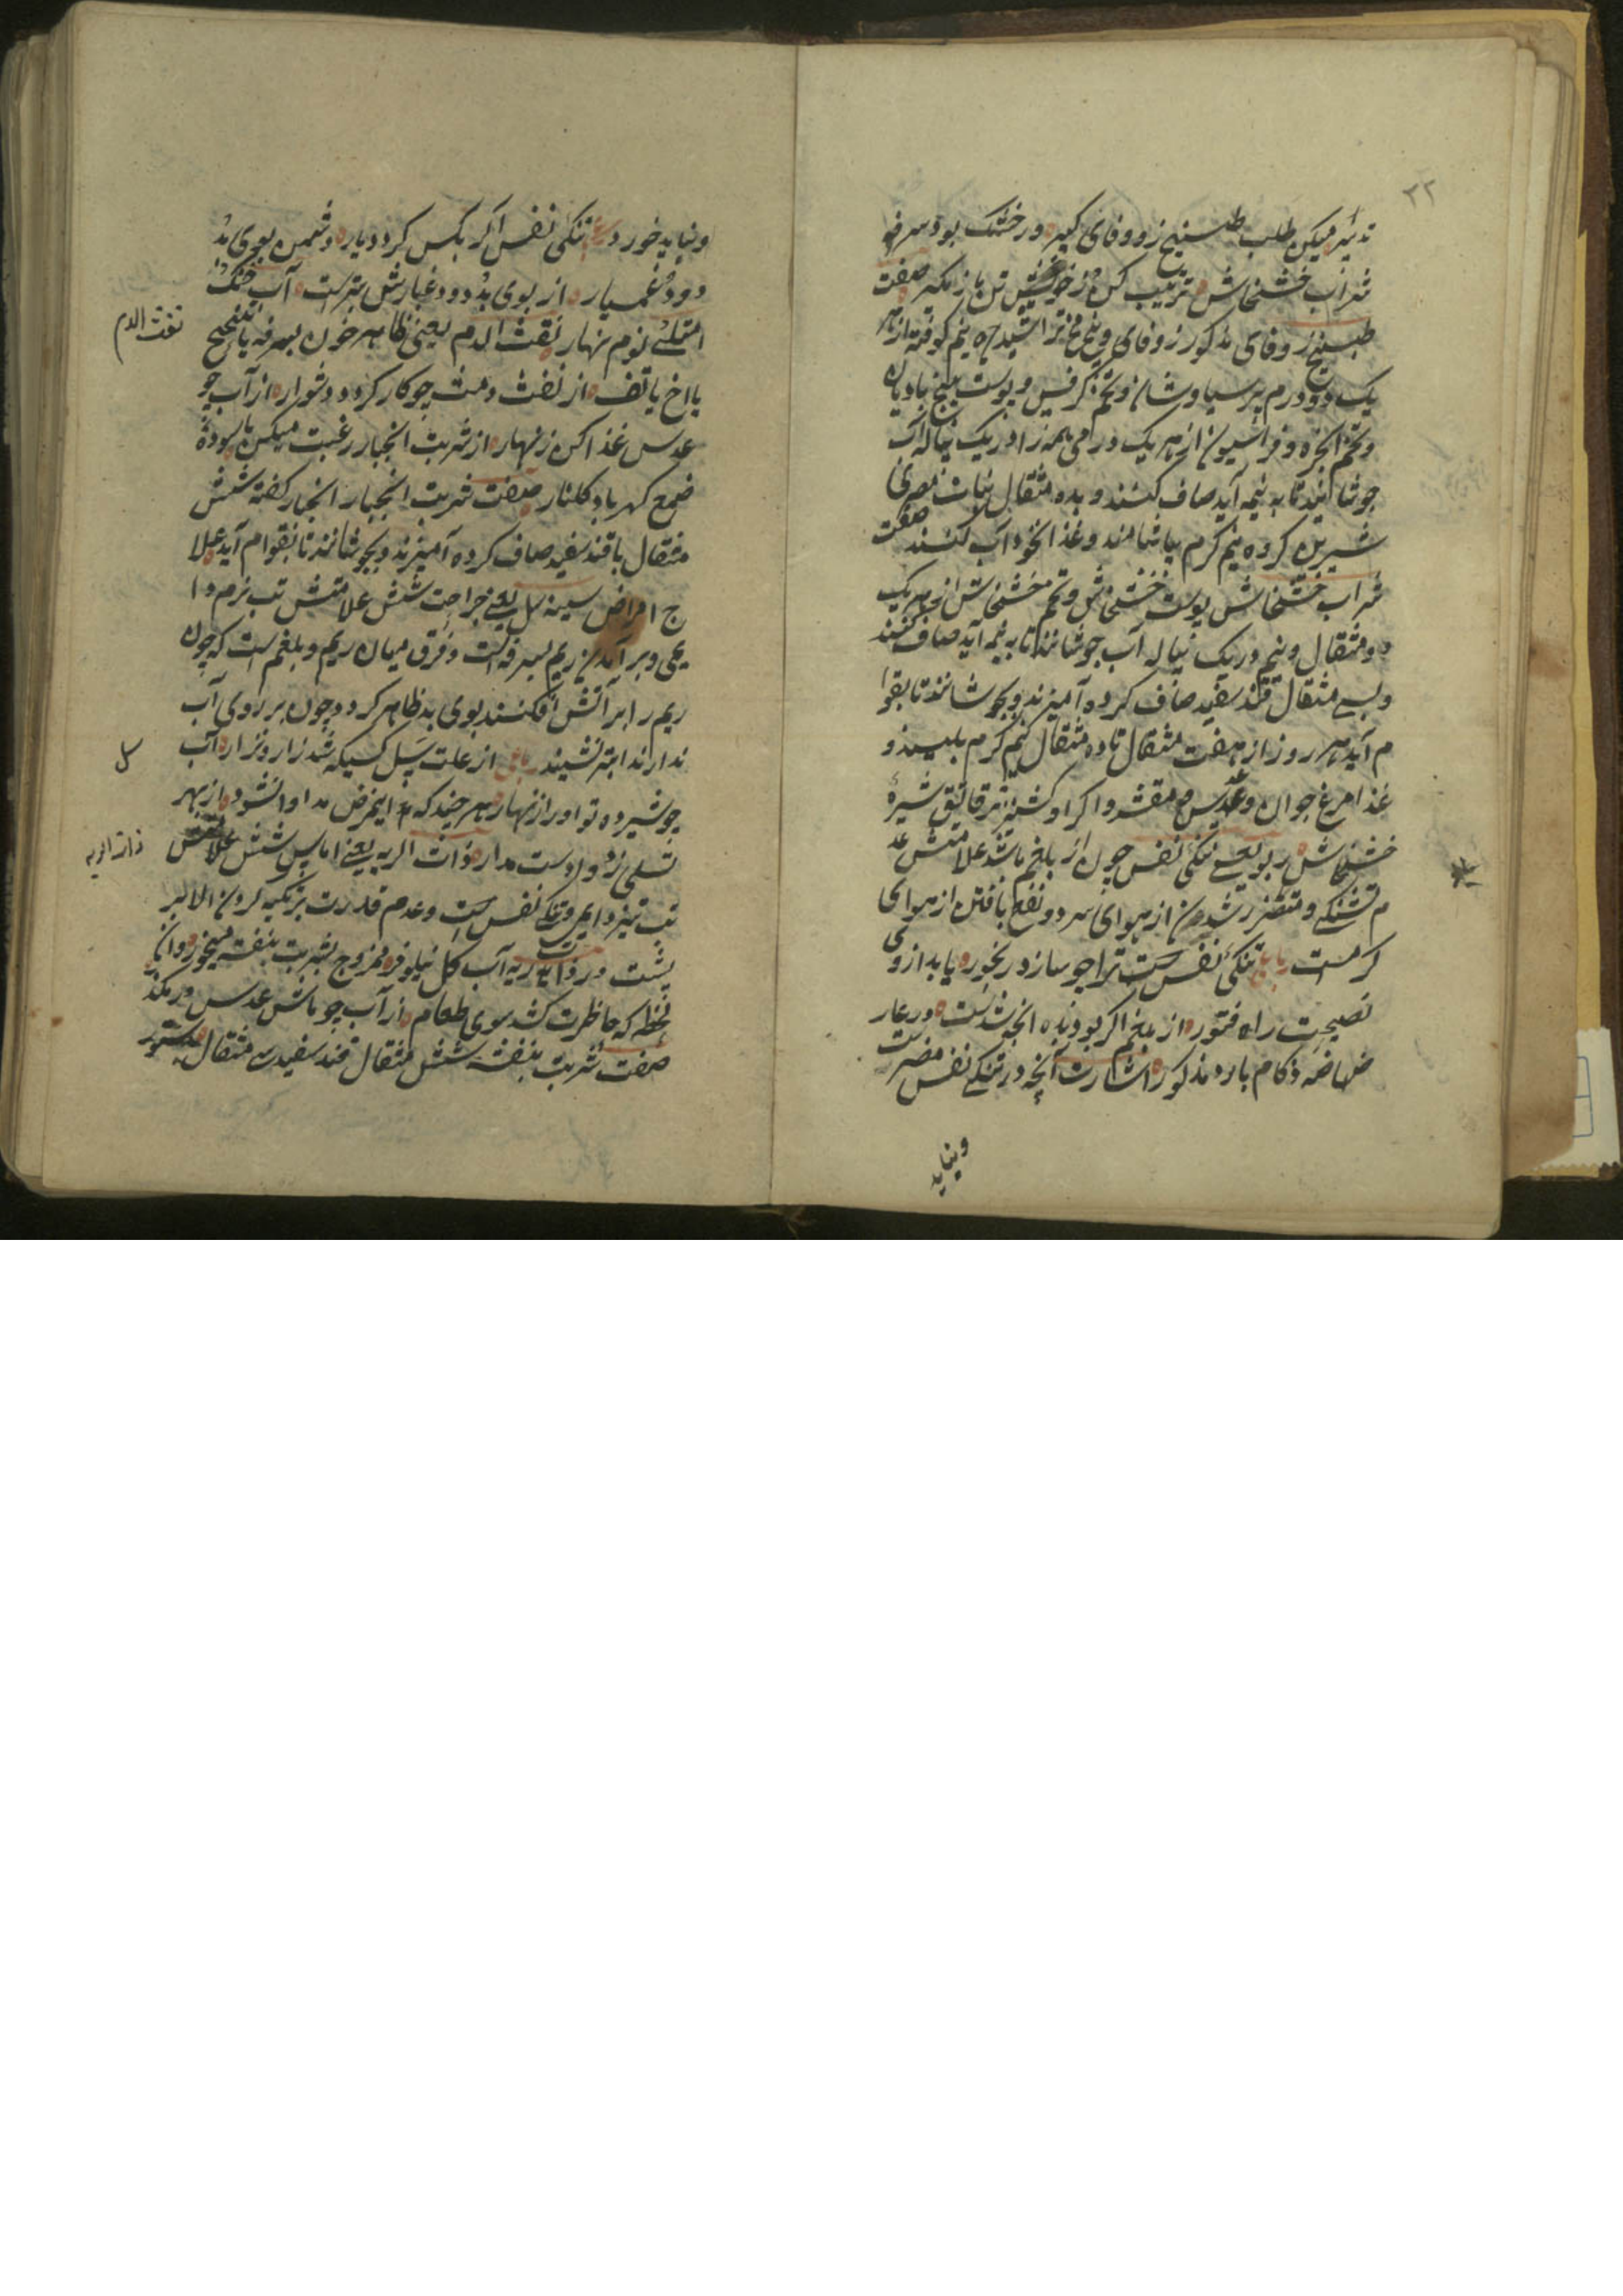 ۲۲
تدبیر میکن طلب طبیخ زوفای کبیر ور خشک بود سرفه
شراب خشخاش ترتیب کن و ز خویش تن باز مگیر صفت
طبیخ زوفای مذکور زوفای و بیخ تراشیده نیم کوفته از هر
یک دو درم پرسیاوشان و تخم کرفس و پوست بیخ بادیان
و تخم انجره و فراسیون از هر یک درمی همه را در یک پیاله آب
جوشانند تا به نیمه آید صاف کنند و بده مثقال نبات مصری
شیرین کرده نیم گرم بیاشامند و غذا نخود آب کنند صفت
شراب خشخاش پوست خشخاش و تخم خشخاش از هر یک
دو مثقال و نیم در یک پیاله آب جوشانند تا به نیمه آید صاف کنند
و بسی مثقال قند سفید صاف کرده آمیزند و بجوشانند تا بقوا
م آید هر روز از هفت مثقال تا ده مثقال نیم گرم بلیسند و
غذا مرغ جوان و عدس مقشر و اکرا و کشنیز تر قاتق شیره
خشخاش ربو یعنی تنگی نفس چون از بلغم باشد علامتش عد
م تشنگی و متضرر شدن از هوای سرد و نفع یافتن از هوای
گرمست رباعی تنگی نفس ست ترا چو سازد رنجور باید از وی
نصیحت راه فتور از بلغم اگر بود بده آنچه شدست در عار
ضهاضه زکام بارد مذکور اشارت آنچه در تنگی نفس مضرست
و نباید
و نباید خورد رباعی تنگی نفس اگر بکس گردد یار دشمن بوی بد
و دود غم یار از بوی بد و دود غبارش بترست آب خنک
امتلئ نوم نهار نفث الدم یعنی ظاهر خون بسرفه یا تنحنح
نفث الدم
یا اخ یا تف از نفث دمت چو کار گردد دشوار از آب جو
عدس غذا کن زنهار از شربت انجبار رغبت میکن با سوده
ضمغ کهربا و گلنار صفت شربت انجبار انجبار کفته شش
مثقال با قند سفید صاف کرده آمیزند و بجوشانند تا بقوام آید علا
ج امراض سینه سل یعنی جراحت شش علامتش تب نرم دا
یمی و بر آمدن ریم بسرفه است و فرق میان ریم و بلغم ست که چون
ریم را بر آتش افکنند بوی بد ظاهر گردد و چون بر روی آب
ندارند ابته نشیند رباعی از علت سل کسیکه شد زار و نزار آب
سل
جو شیر ده تو او را زنهار هر چند که این مرض مداوا نشود از بهر
تسلی زد و دست مدار ذات الریه یعنی اماس شش علامتش
ذات الریه
تب تیز دایمی و تنگی نفس ست و عدم قدرت بر تکیه کردن الا بر
پشت در ذات ریه آب گل نیلوفر ممزوج بشربت بنفشه میخور و ان
لحظه که خاطرت کشد سوی طعام از آب جو ماش عدس در مگذر
صفت شربت بنفشه شش مثقال قند سفید سی مثقال بدستور